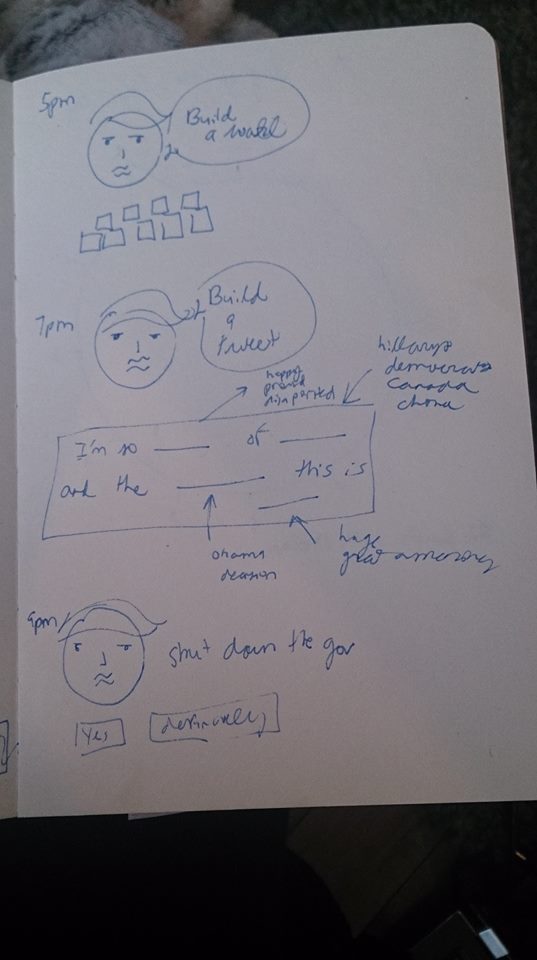 5pm
Build
a
7pm
Build
a
tweet
happy
proud
hillary
democrats
Canada
china
I'm so of
and the this is
obama
decision
huge
great
9pm
shut down the gov
Yes
definitely